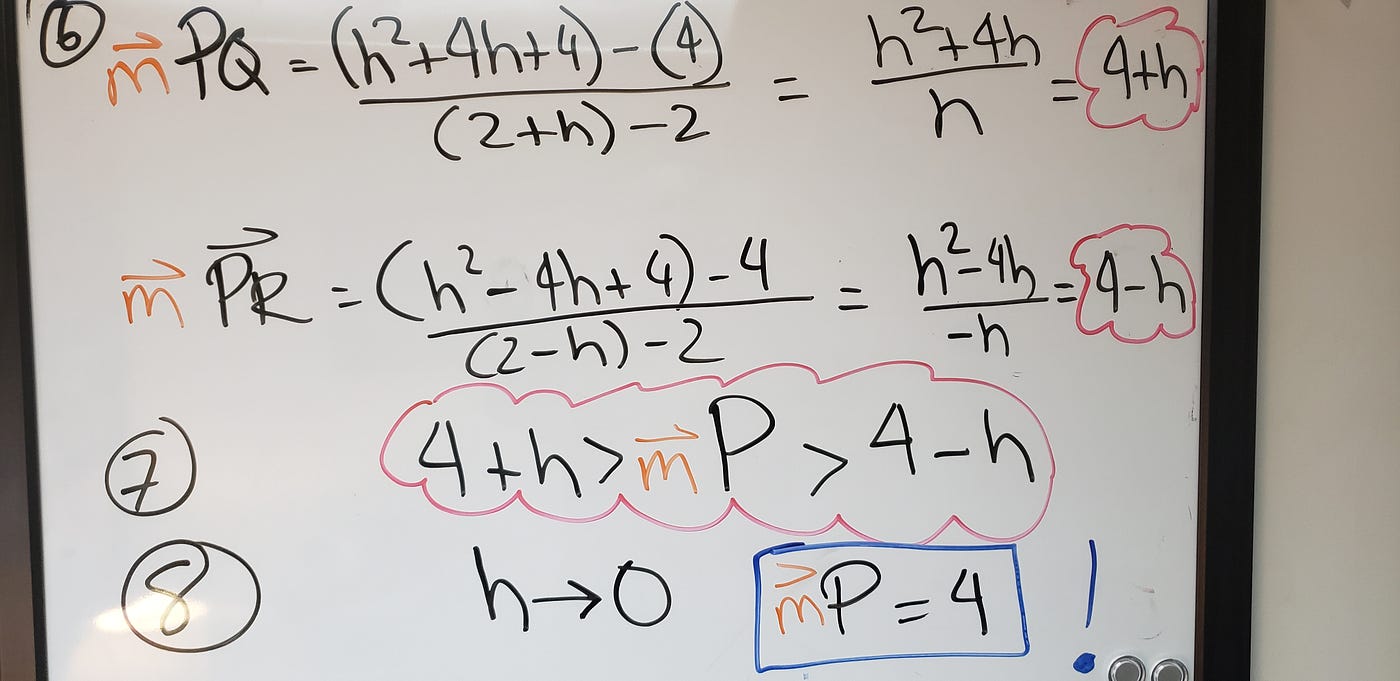 ⑥ m⃗ PQ = (h²+4h+4)-(4) / (2+h)-2 = h²+4h / h = 4+h
m⃗ P⃗R⃗ = (h²-4h+4)-4 / (2-h)-2 = h²-4h / -h = 4-h
⑦ 4+h > m⃗ P > 4-h
⑧ h→0 m⃗ P = 4 !